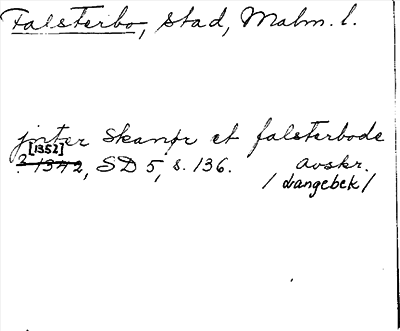 Falsterbo, stad, Malm. l.
jnter Skanør et falsterbode
[1352]
? 1342, SD 5, s. 136. avskr.
/Langebek/